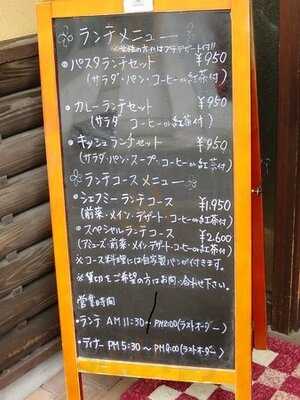 ランチメニュー
※女性の方にはプチデザート付!!
・パスタランチセット ¥950
(サラダ・パン・コーヒーor紅茶付)
・カレーランチセット ¥950
(サラダ コーヒーor紅茶付)
・キッシュランチセット ¥950
(サラダ・パン・スープ・コーヒーor紅茶付)
ランチコースメニュー
・シェフミーランチコース ¥1,950
(前菜・メイン・デザート・コーヒーor紅茶付)
・スペシャルランチコース ¥2,600
(アミューズ・前菜・メイン・デザート・コーヒーor紅茶付)
※コース料理には自家製パンが付きます。
※貸切をご希望の方はお問い合わせ下さい。
営業時間
・ランチ AM11:30~PM2:00(ラストオーダー)
・ディナー PM5:30~PM9:00(ラストオーダー)